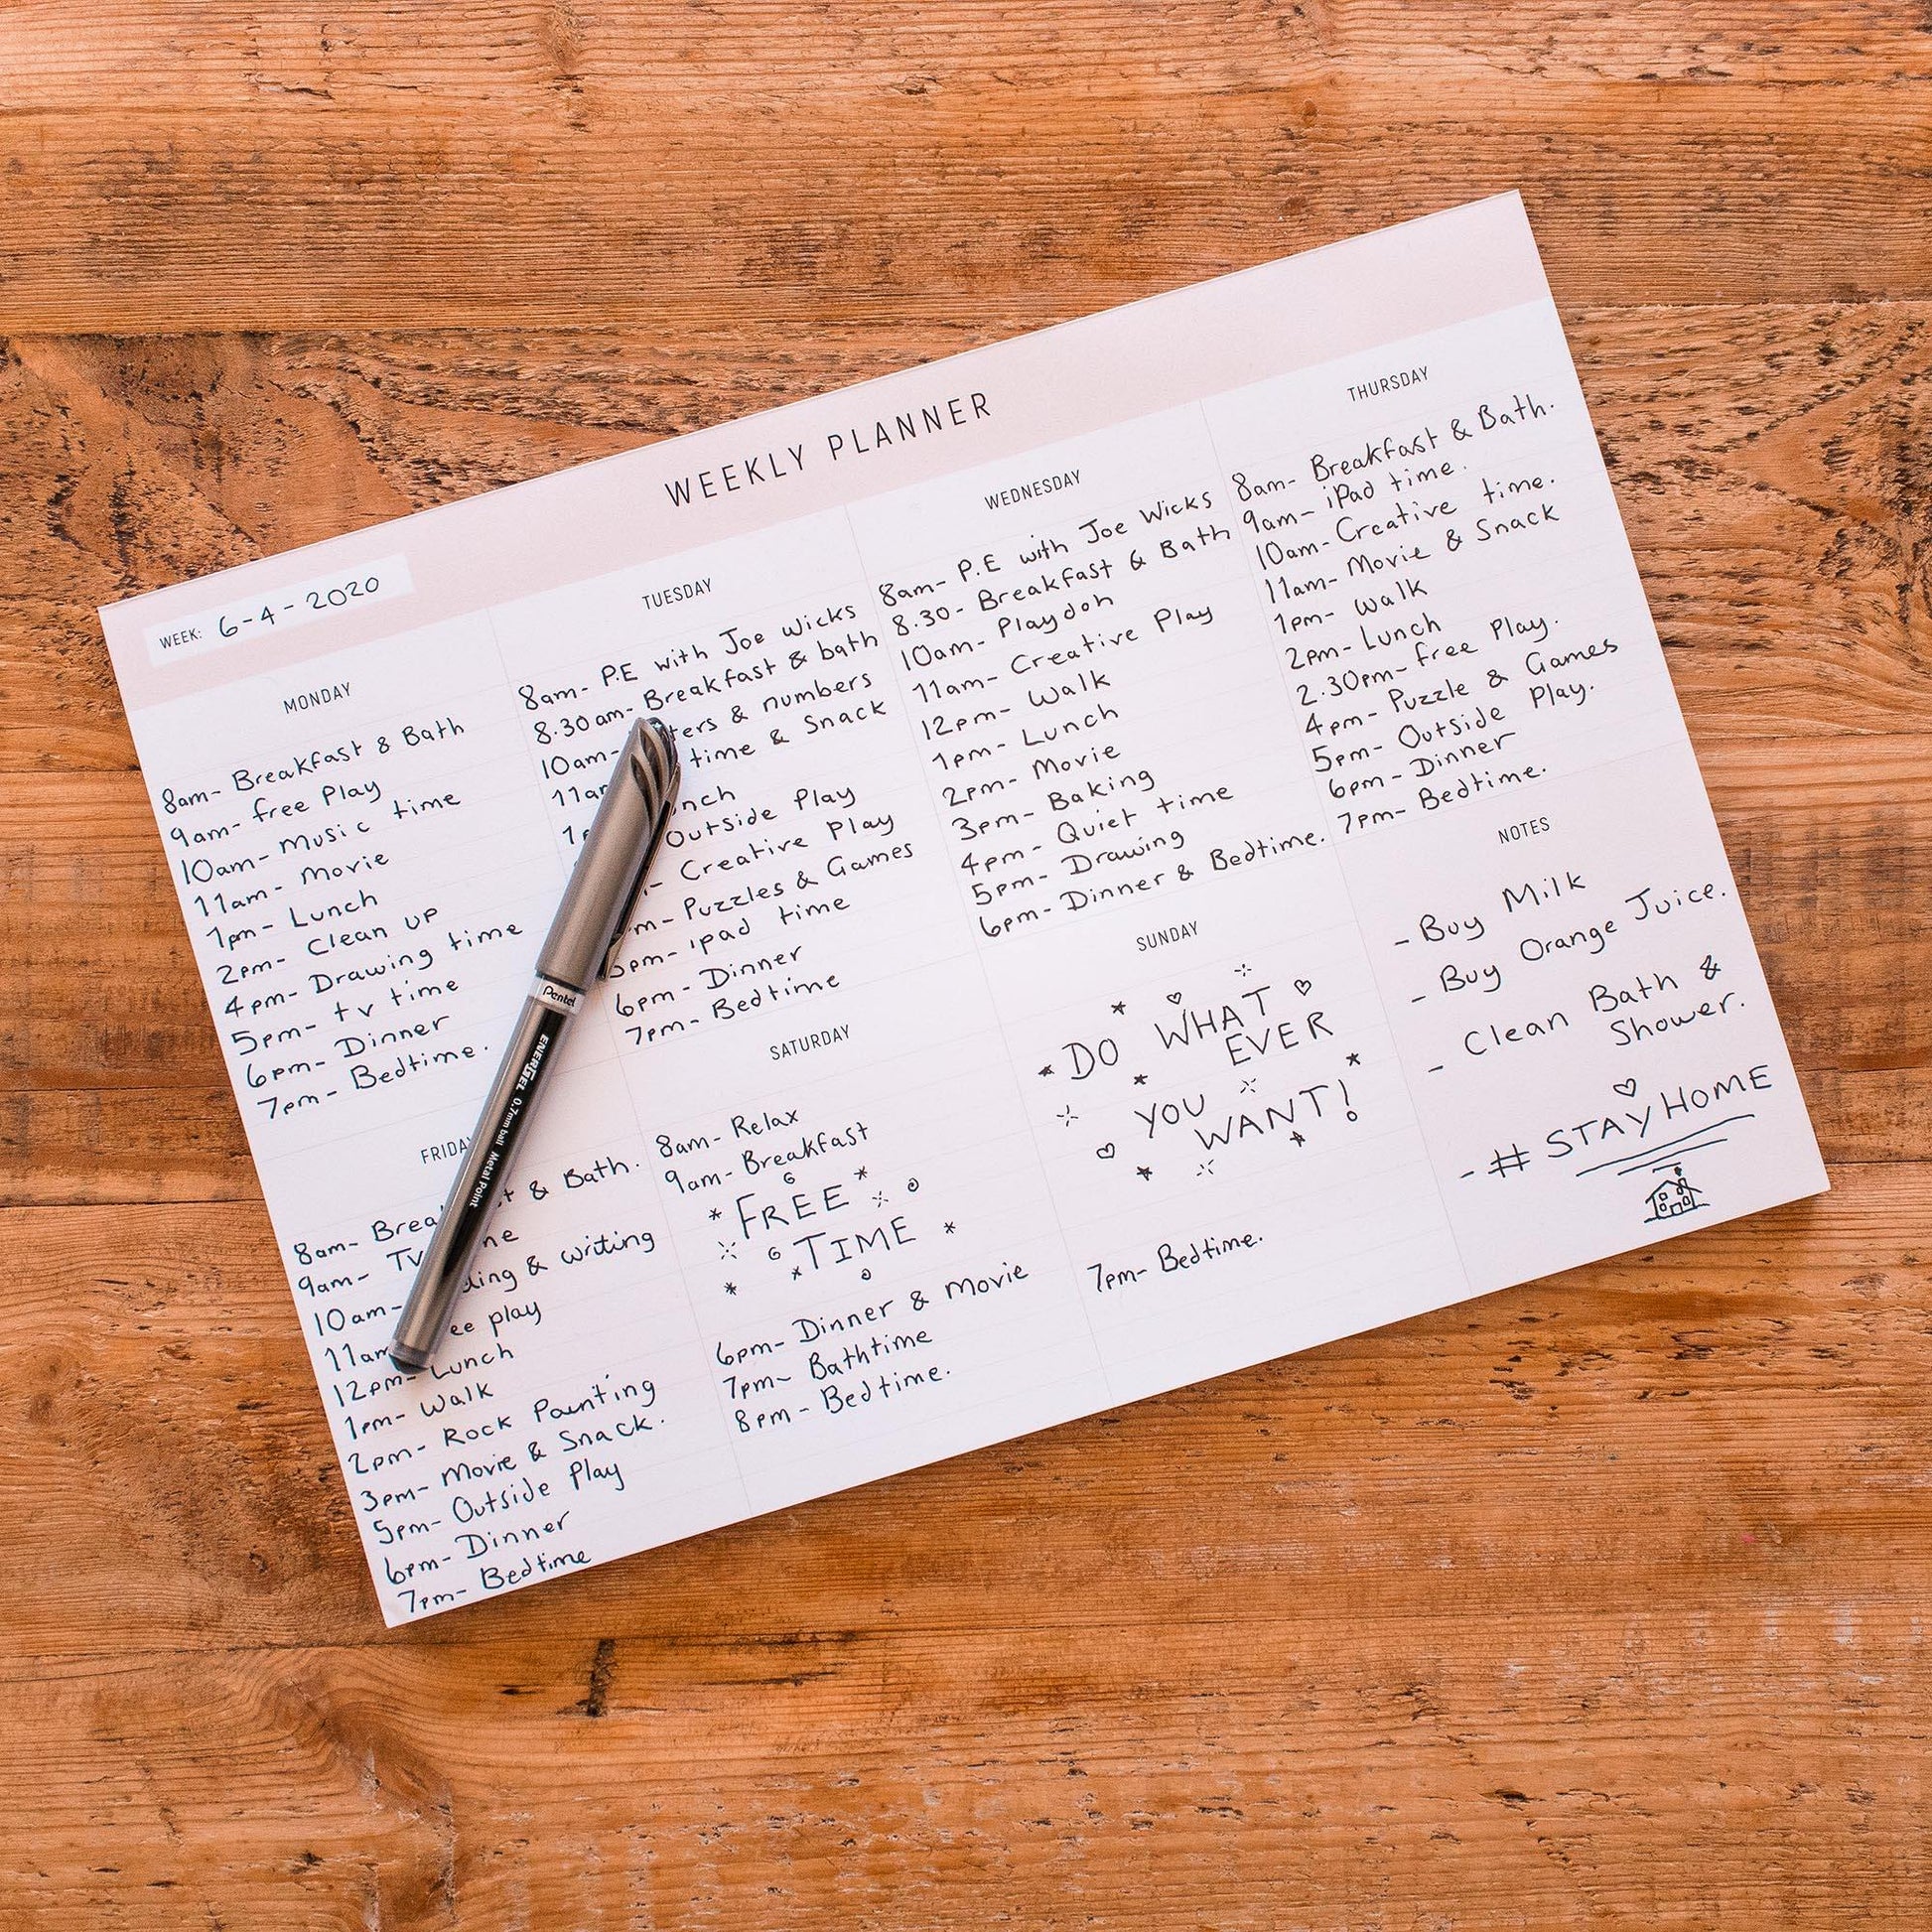 WEEKLY PLANNER
WEEK: 6-4-2020
MONDAY
8am- Breakfast & Bath
9am- free Play
10am- Music time
11am- Movie
1pm- Lunch
2pm- Clean up
4pm- Drawing time
5pm- tv time
6pm- Dinner
7pm- Bedtime.
TUESDAY
8am- P.E with Joe Wicks
8.30am- Breakfast & bath
10am- & numbers
time & Snack
Outside Play
Creative Play
Puzzles & Games
ipad time
6pm- Dinner
7pm- Bedtime
WEDNESDAY
8am- P.E with Joe Wicks
8.30- Breakfast & Bath
10am- Playdoh
11am- Creative Play
12pm- Walk
1pm- Lunch
2pm- Movie
3pm- Baking
4pm- Quiet time
5pm- Drawing
6pm- Dinner & Bedtime.
THURSDAY
8am- Breakfast & Bath.
9am- iPad time.
10am- Creative time.
11am- Movie & Snack
1pm- Walk
2pm- Lunch
2.30pm- free Play.
4pm- Puzzle & Games
5pm- Outside Play.
6pm- Dinner
7pm- Bedtime.
8am- & Bath.
9am- Tv
10am- & writing
play
12pm- Lunch
1pm- Walk
2pm- Rock Painting
3pm- Movie & Snack.
5pm- Outside Play
6pm- Dinner
7pm- Bedtime
SATURDAY
8am- Relax
9am- Breakfast
FREE
TIME
6pm- Dinner & Movie
7pm- Bathtime
8pm- Bedtime.
SUNDAY
DO WHAT
EVER
YOU
WANT!
7pm- Bedtime.
NOTES
- Buy Milk
- Buy Orange Juice.
- Clean Bath &
Shower.
- # STAYHOME
Pentel
ENERGEL 0.7mm ball Metal Point